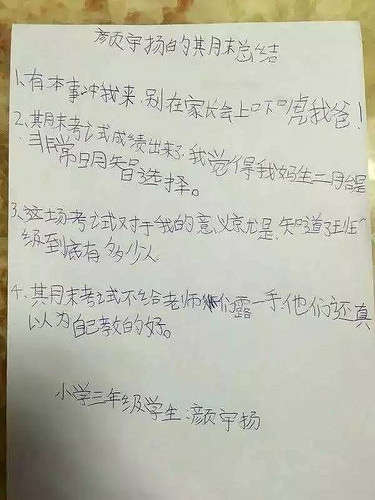 颜宇扬的其月末总结
1、有本事冲我来,别在家长会上吓唬我爸!
2、其月末考试成绩出来了,我觉得我妈生二月台是
非常明知的选择。
3、这场考试对于我的意义就是,知道了班
级到底有多少人
4、其月末考试不给老师们露一手,他们还真
以为自己教的好。
小学三年级学生:颜宇扬